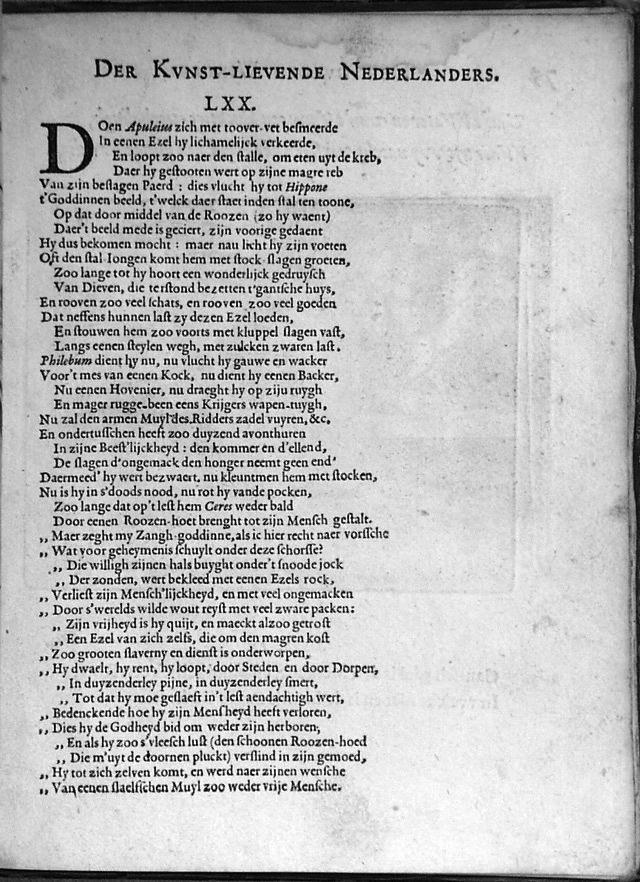 DER KVNST-LIEVENDE NEDERLANDERS.
LXX.
DOen Apuleius zich met toover-vet besmeerde
In eenen Ezel hy lichamelijck verkeerde,
En loopt zoo naer den stalle, om eten uyt de kreb,
Daer hy gestooten wert op zijne magre reb
Van zijn beslagen Paerd : dies vlucht hy tot Hippone
t'Goddinnen beeld, t'welck daer staet inden stal ten toone,
Op dat door middel van de Roozen (zo hy waent)
Daer't beeld mede is geciert, zijn voorige gedaent
Hy dus bekomen mocht : maer nau licht hy zijn voeten
Oft den stal-Iongen komt hem met stock-slagen groeten,
Zoo lange tot hy hoort een wonderlijck gedruysch
Van Dieven, die terstond bezetten t'gantsche huys,
En rooven zoo veel schats, en rooven zoo veel goeden
Dat neffens hunnen last zy dezen Ezel loeden,
En stouwen hem zoo voorts met kluppel slagen vast,
Langs eenen steylen wegh, met zulcken zwaren last.
Philebum dient hy nu, nu vlucht hy gauwe en wacker
Voor't mes van eenen Kock, nu dient hy eenen Backer,
Nu eenen Hovenier, nu draeght hy op ziju ruygh
En mager rugge-been eens Krijgers wapen-tuygh,
Nu zal den armen Muyl des Ridders zadel vuyren, &c,
En ondertusschen heeft zoo duyzend avonthuren
In zijne Beest'lijckheyd : den kommer en d'ellend,
De slagen d'ongemack den honger neemt geen end'
Daermeed' hy wert bezwaert, nu kleuntmen hem met stocken,
Nu is hy in s'doods nood, nu rot hy vande pocken,
Zoo lange dat op't lest hem Ceres weder bald
Door eenen Roozen-hoet brenght tot zijn Mensch gestalt.
,, Maer zeght my Zangh-goddinne, als ic hier recht naer vorssche
,, Wat voor geheymenis schuylt onder deze schorsse?
,, Die willigh zijnen hals buyght onder't snoode jock
,, Der zonden, wert bekleed met eenen Ezels rock,
,, Verliest zijn Mensch'lijckheyd, en met veel ongemacken
,, Door s'werelds wilde wout reyst met veel zware packen:
,, Zijn vrijheyd is hy quijt, en maeckt alzoo getrost
,, Een Ezel van zich zelfs, die om den magren kost
,, Zoo grooten slaverny en dienst is onderworpen,
,, Hy dwaelt, hy rent, hy loopt, door Steden en door Dorpen,
,, In duyzenderley pijne, in duyzenderley smert,
,, Tot dat hy moe geslaeft in't lest aendachtigh wert,
,, Bedenckende hoe hy zijn Mensheyd heeft verloren,
,, Dies hy de Godheyd bid om weder zijn herboren;
,, En als hy zoo s'vleesch lust (den schoonen Roozen-hoed
,, Die m'uyt de doornen pluckt) verslind in zijn gemoed,
,, Hy tot zich zelven komt, en werd naer zijnen wensche
,, Van eenen slaefschen Muyl zoo weder vrije Mensche.